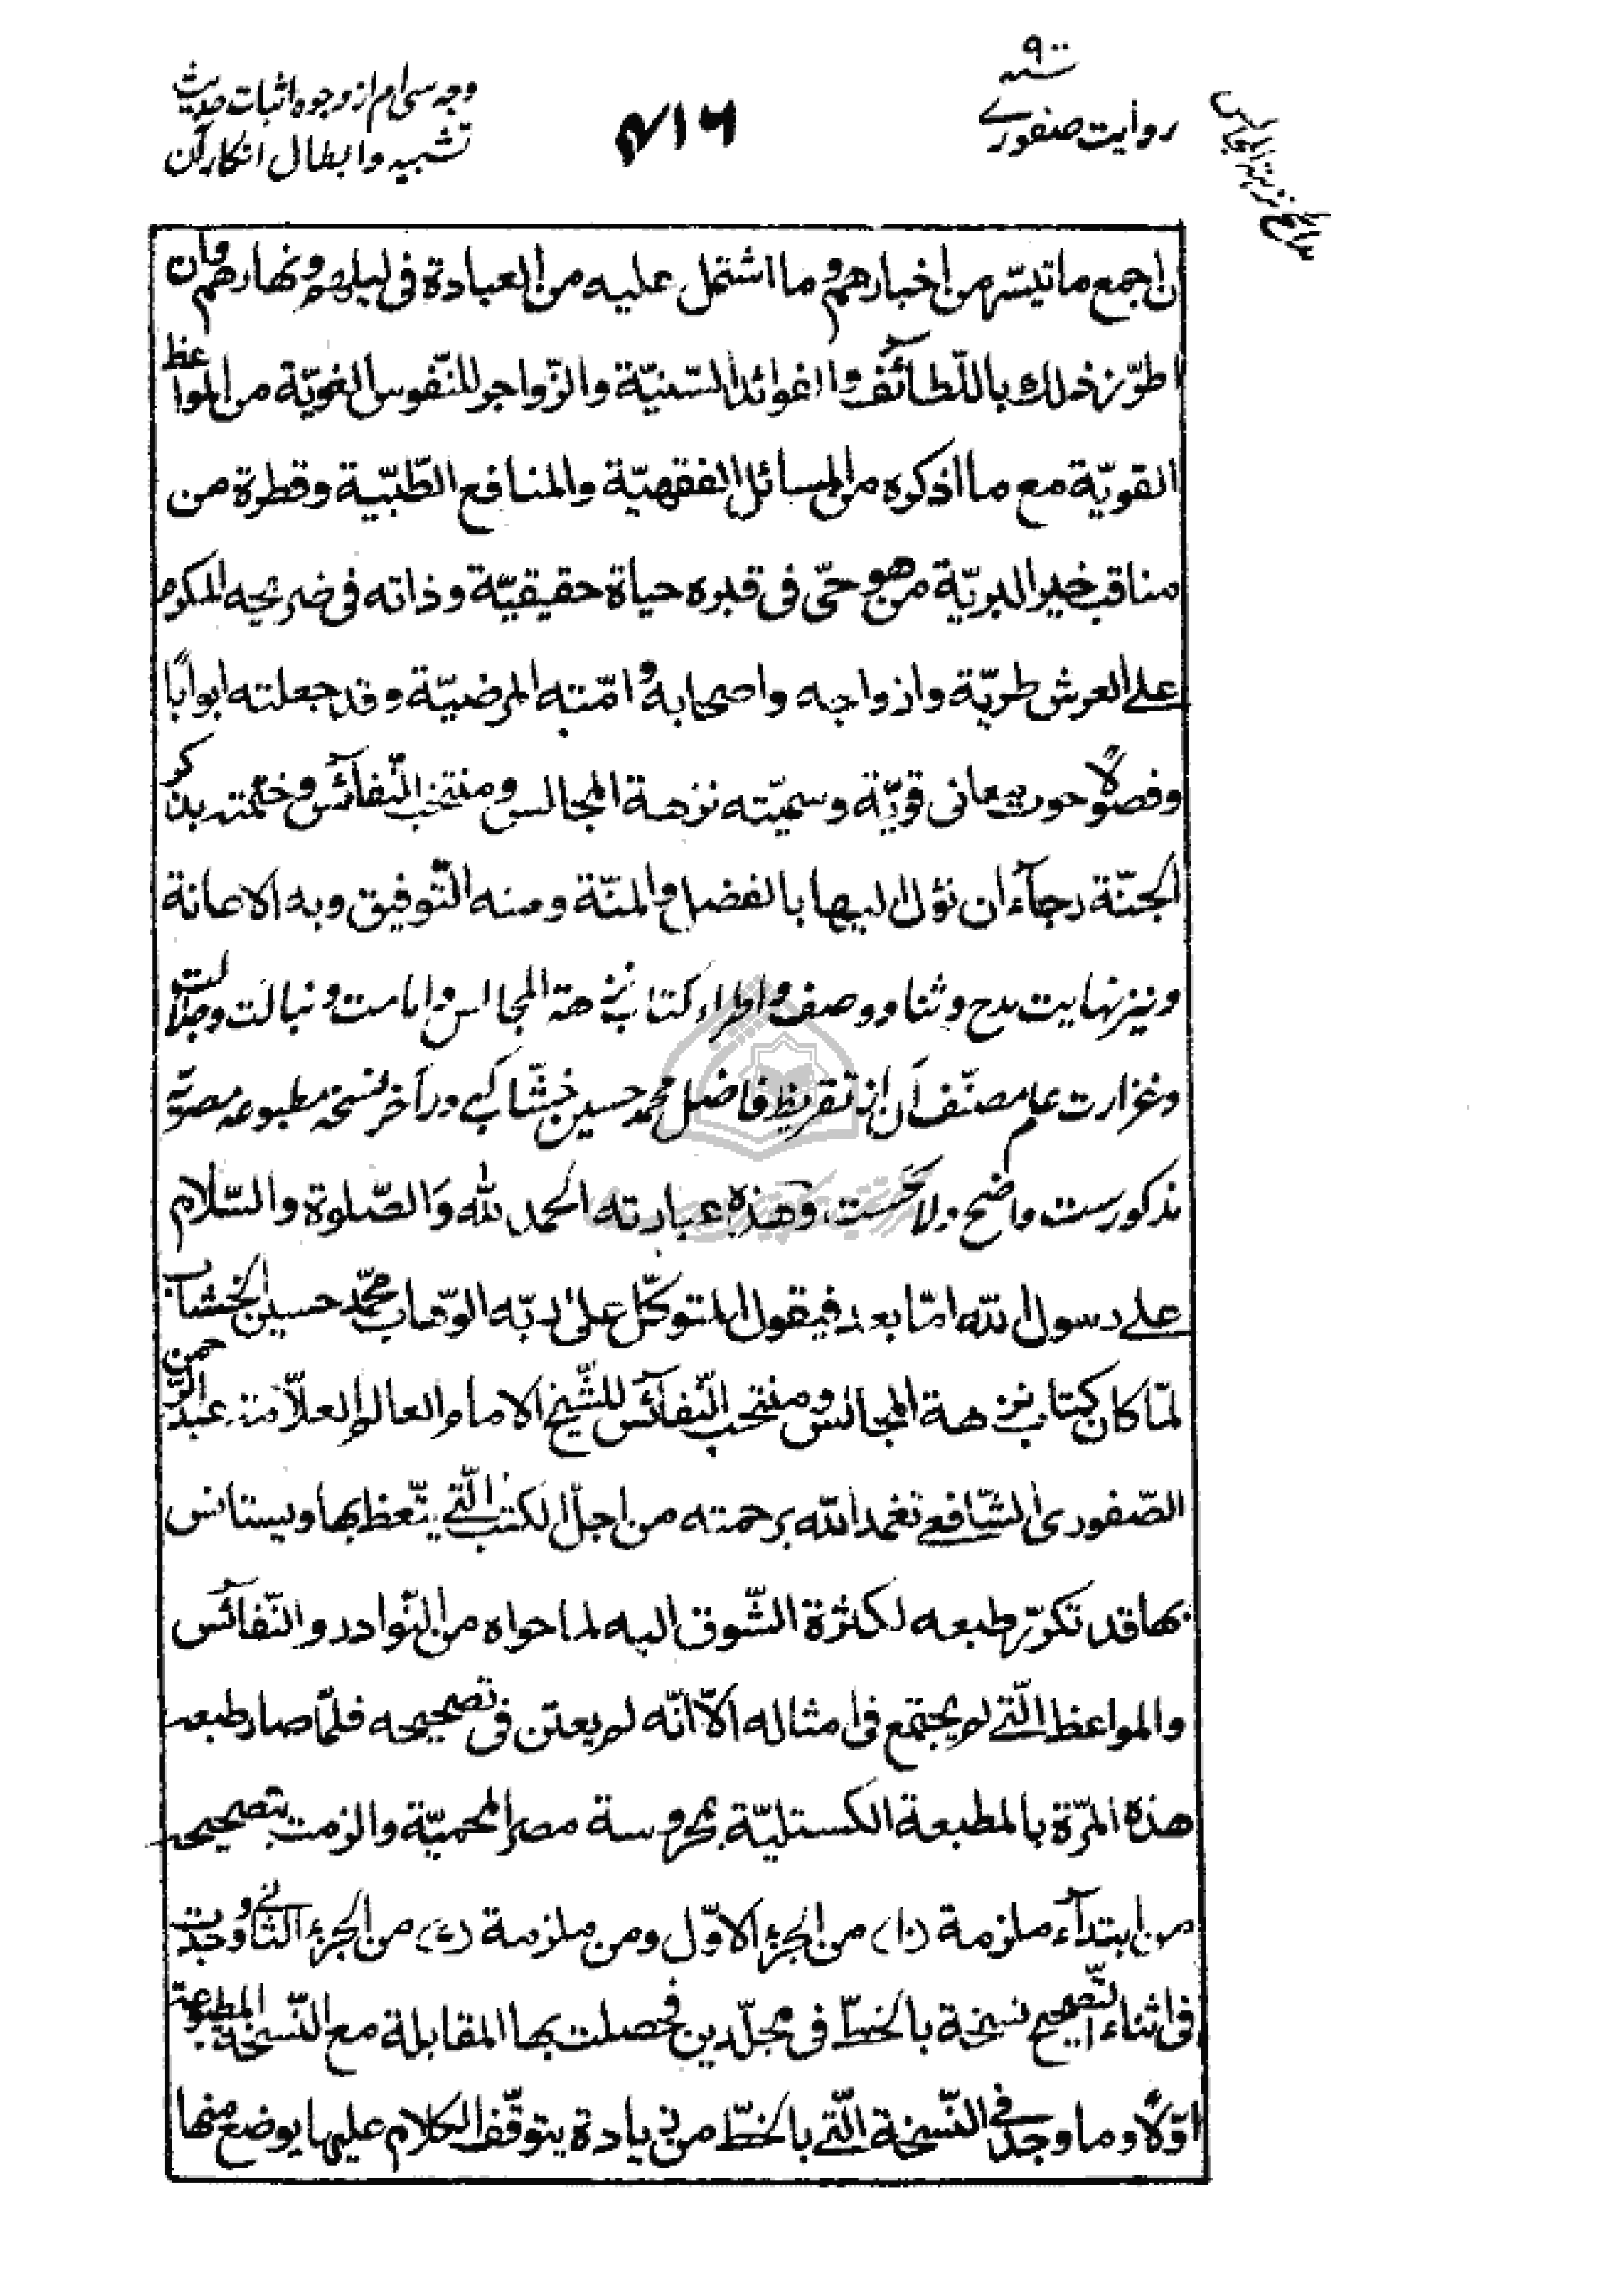 سنه ٩٠٠
روایت صفوری
۴۱۶
وجه سی ام از وجوه اثبات حدیث
تشبیه و ابطال انکار آن
مدائح نزهة المجالس
ن اجمع ما تيسّر من اخبارهم و ما اشتمل عليه من العبادة فى ليلهم و نهارهم وان
اطرّز ذلك باللّطائف و الفوائد السّنيّة والزّواجر للنّفوس الغويّة من المواعظ
القويّة مع ما اذكره من المسائل الفقهيّة والمنافع الطّبّية وقطرة من
مناقب خير البريّة من هو حىّ فى قبره حياة حقيقيّة وذاته فى ضريحه المكرم
على العرش طريّة وازواجه واصحابه و امّته المرضيّة وقد جعلته ابوابًا
وفصولًا حوت معانى قويّة وسميّته نزهة المجالس ومنتخب النّفائس وختمته بذكر
الجنّة رجآء ان نؤل اليها بالفضل والمنّة ومنه التّوفيق وبه الاعانة
ونیز نهایت مدح وثنا ووصف واطراء کتاب نزهة المجالس وامامت ونبالت وجلالت
وغزارت علم مصنّف آن از تقریظ فاضل محمد حسین خشّاب که در آخر نسخه مطبوعه مصریّه
مذکورست واضح ولائحست وهذه عبارته الحمد لله وَالصّلوة والسّلام
على رسول الله امّا بعد فيقول المتوكّل على ربّه الوهّاب محمّد حسين الخشاب
لمّا كان كتاب نزهة المجالس ومنتخب النّفائس للشّيخ الامام العالم العلاّمة عبد الرّحمن
الصّفورى الشّافعى تغمد الله برحمته من اجلّ الكتب الّتى يتّعظ بها ويستانس
بها قد تكرّر طبعه لكثرة الشّوق اليه لما حواه من النّوادر والنّفائس
والمواعظ الّتى لم يجتمع فى امثاله الاّ انّه لم يعتن فى تصحيحه فلمّا صار طبعه
هذه المرّة بالمطبعة الكستليّة بمحروسة مصر المحميّة والزمت بتصحيحه
من ابتدآء ملزمة (١٠) من الجزء الاوّل ومن ملزمة (٤) من الجزء الثانى وجدت
فى اثناء التّصحيح نسخة بالخطّ فى مجلّدين فحصلت بها المقابلة مع النّسخة المطبوعة
اوّلًا وما وجد فى النّسخة الّتى بالخطّ من زيادة يتوقّف الكلام عليها يوضع منها